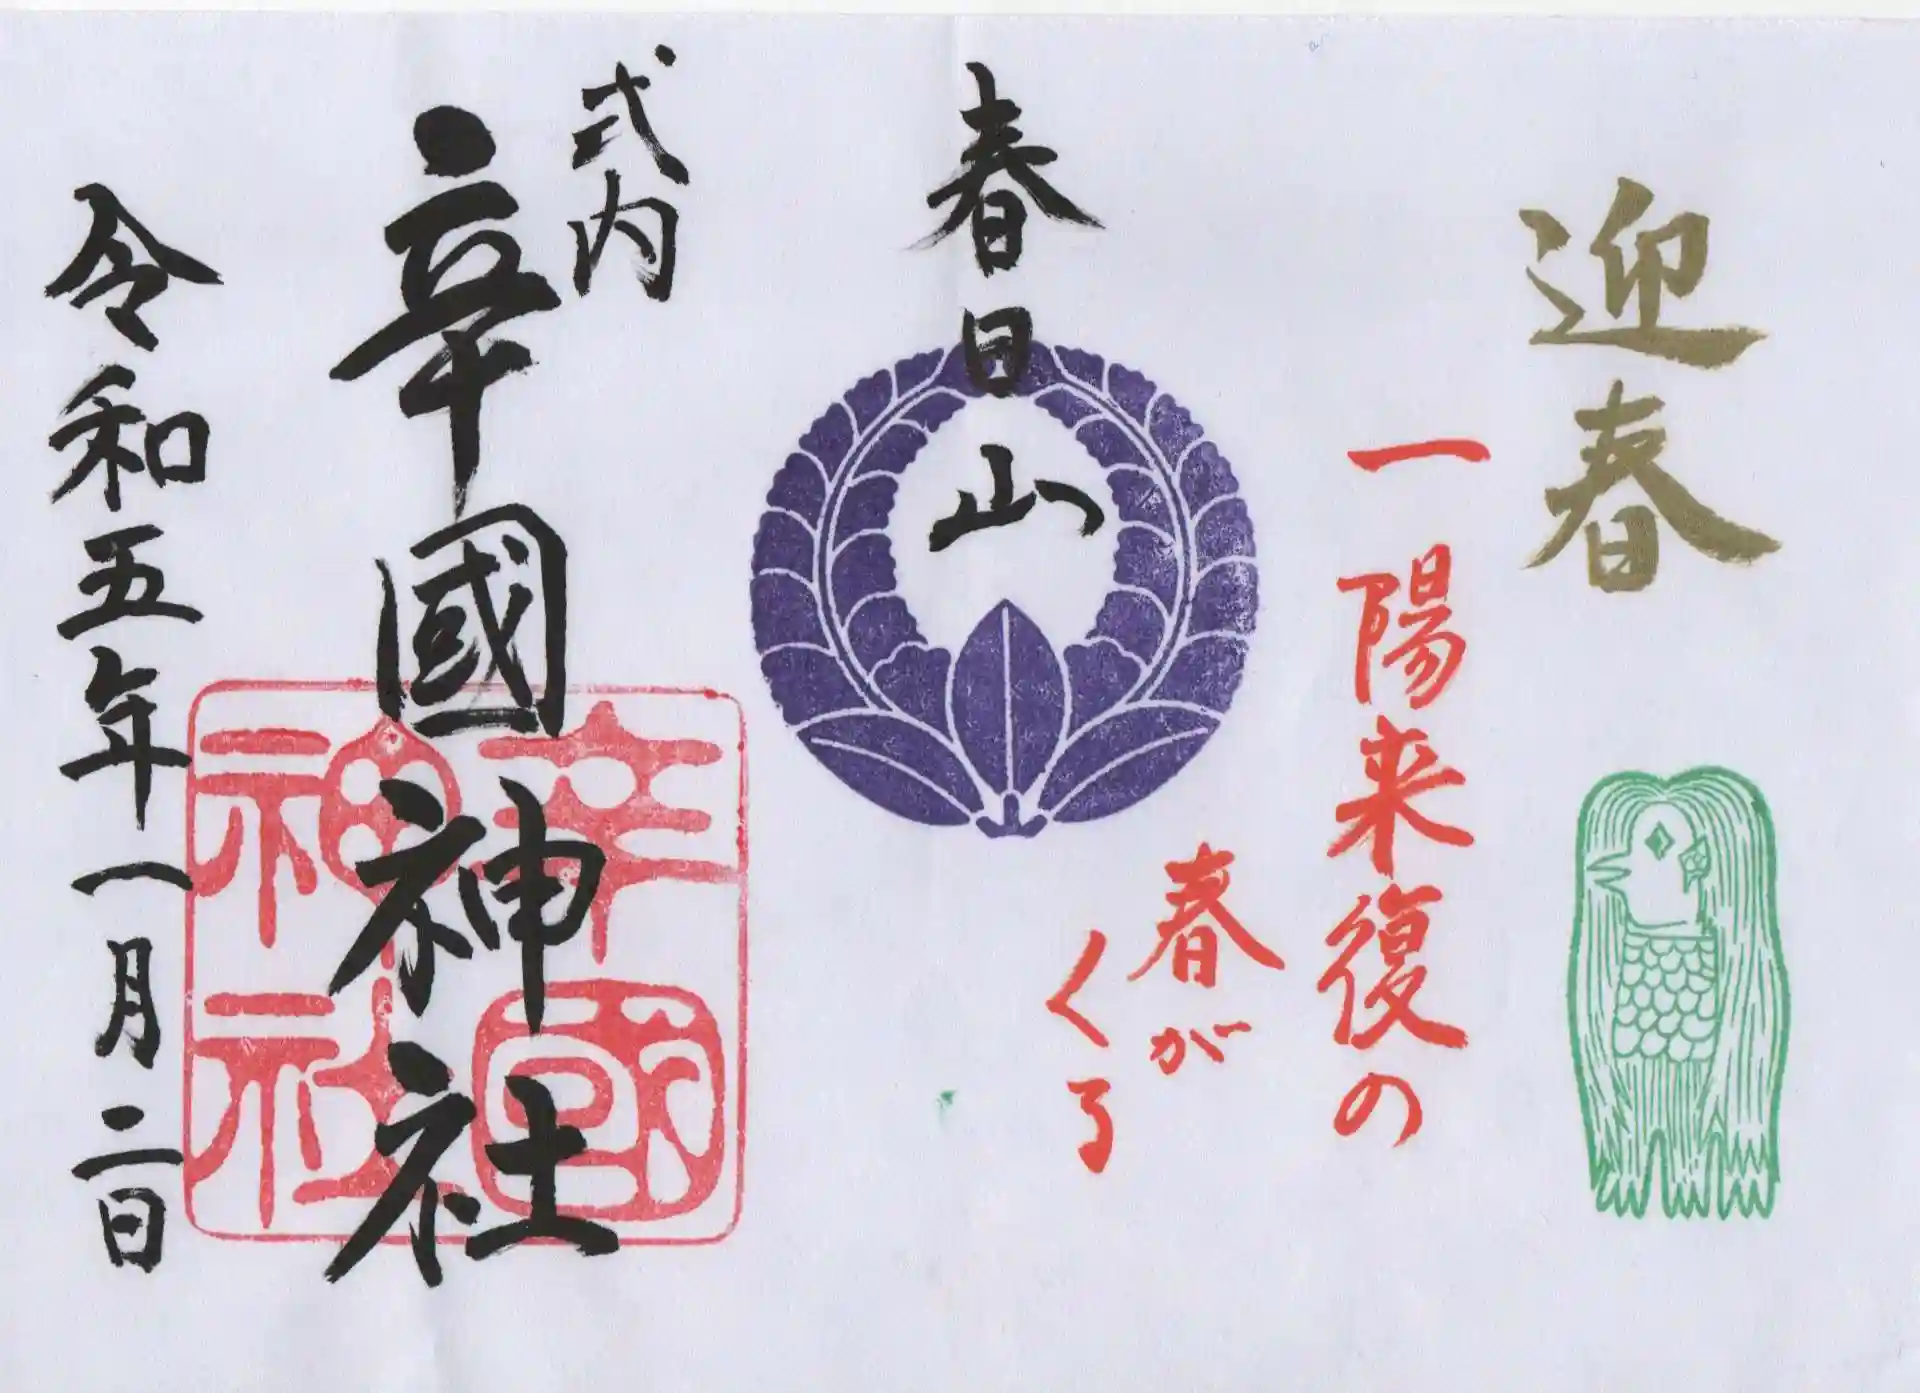 迎春
一陽来復の
春が
くる
春日山
式内
辛國神社
辛國神社
令和五年一月二日